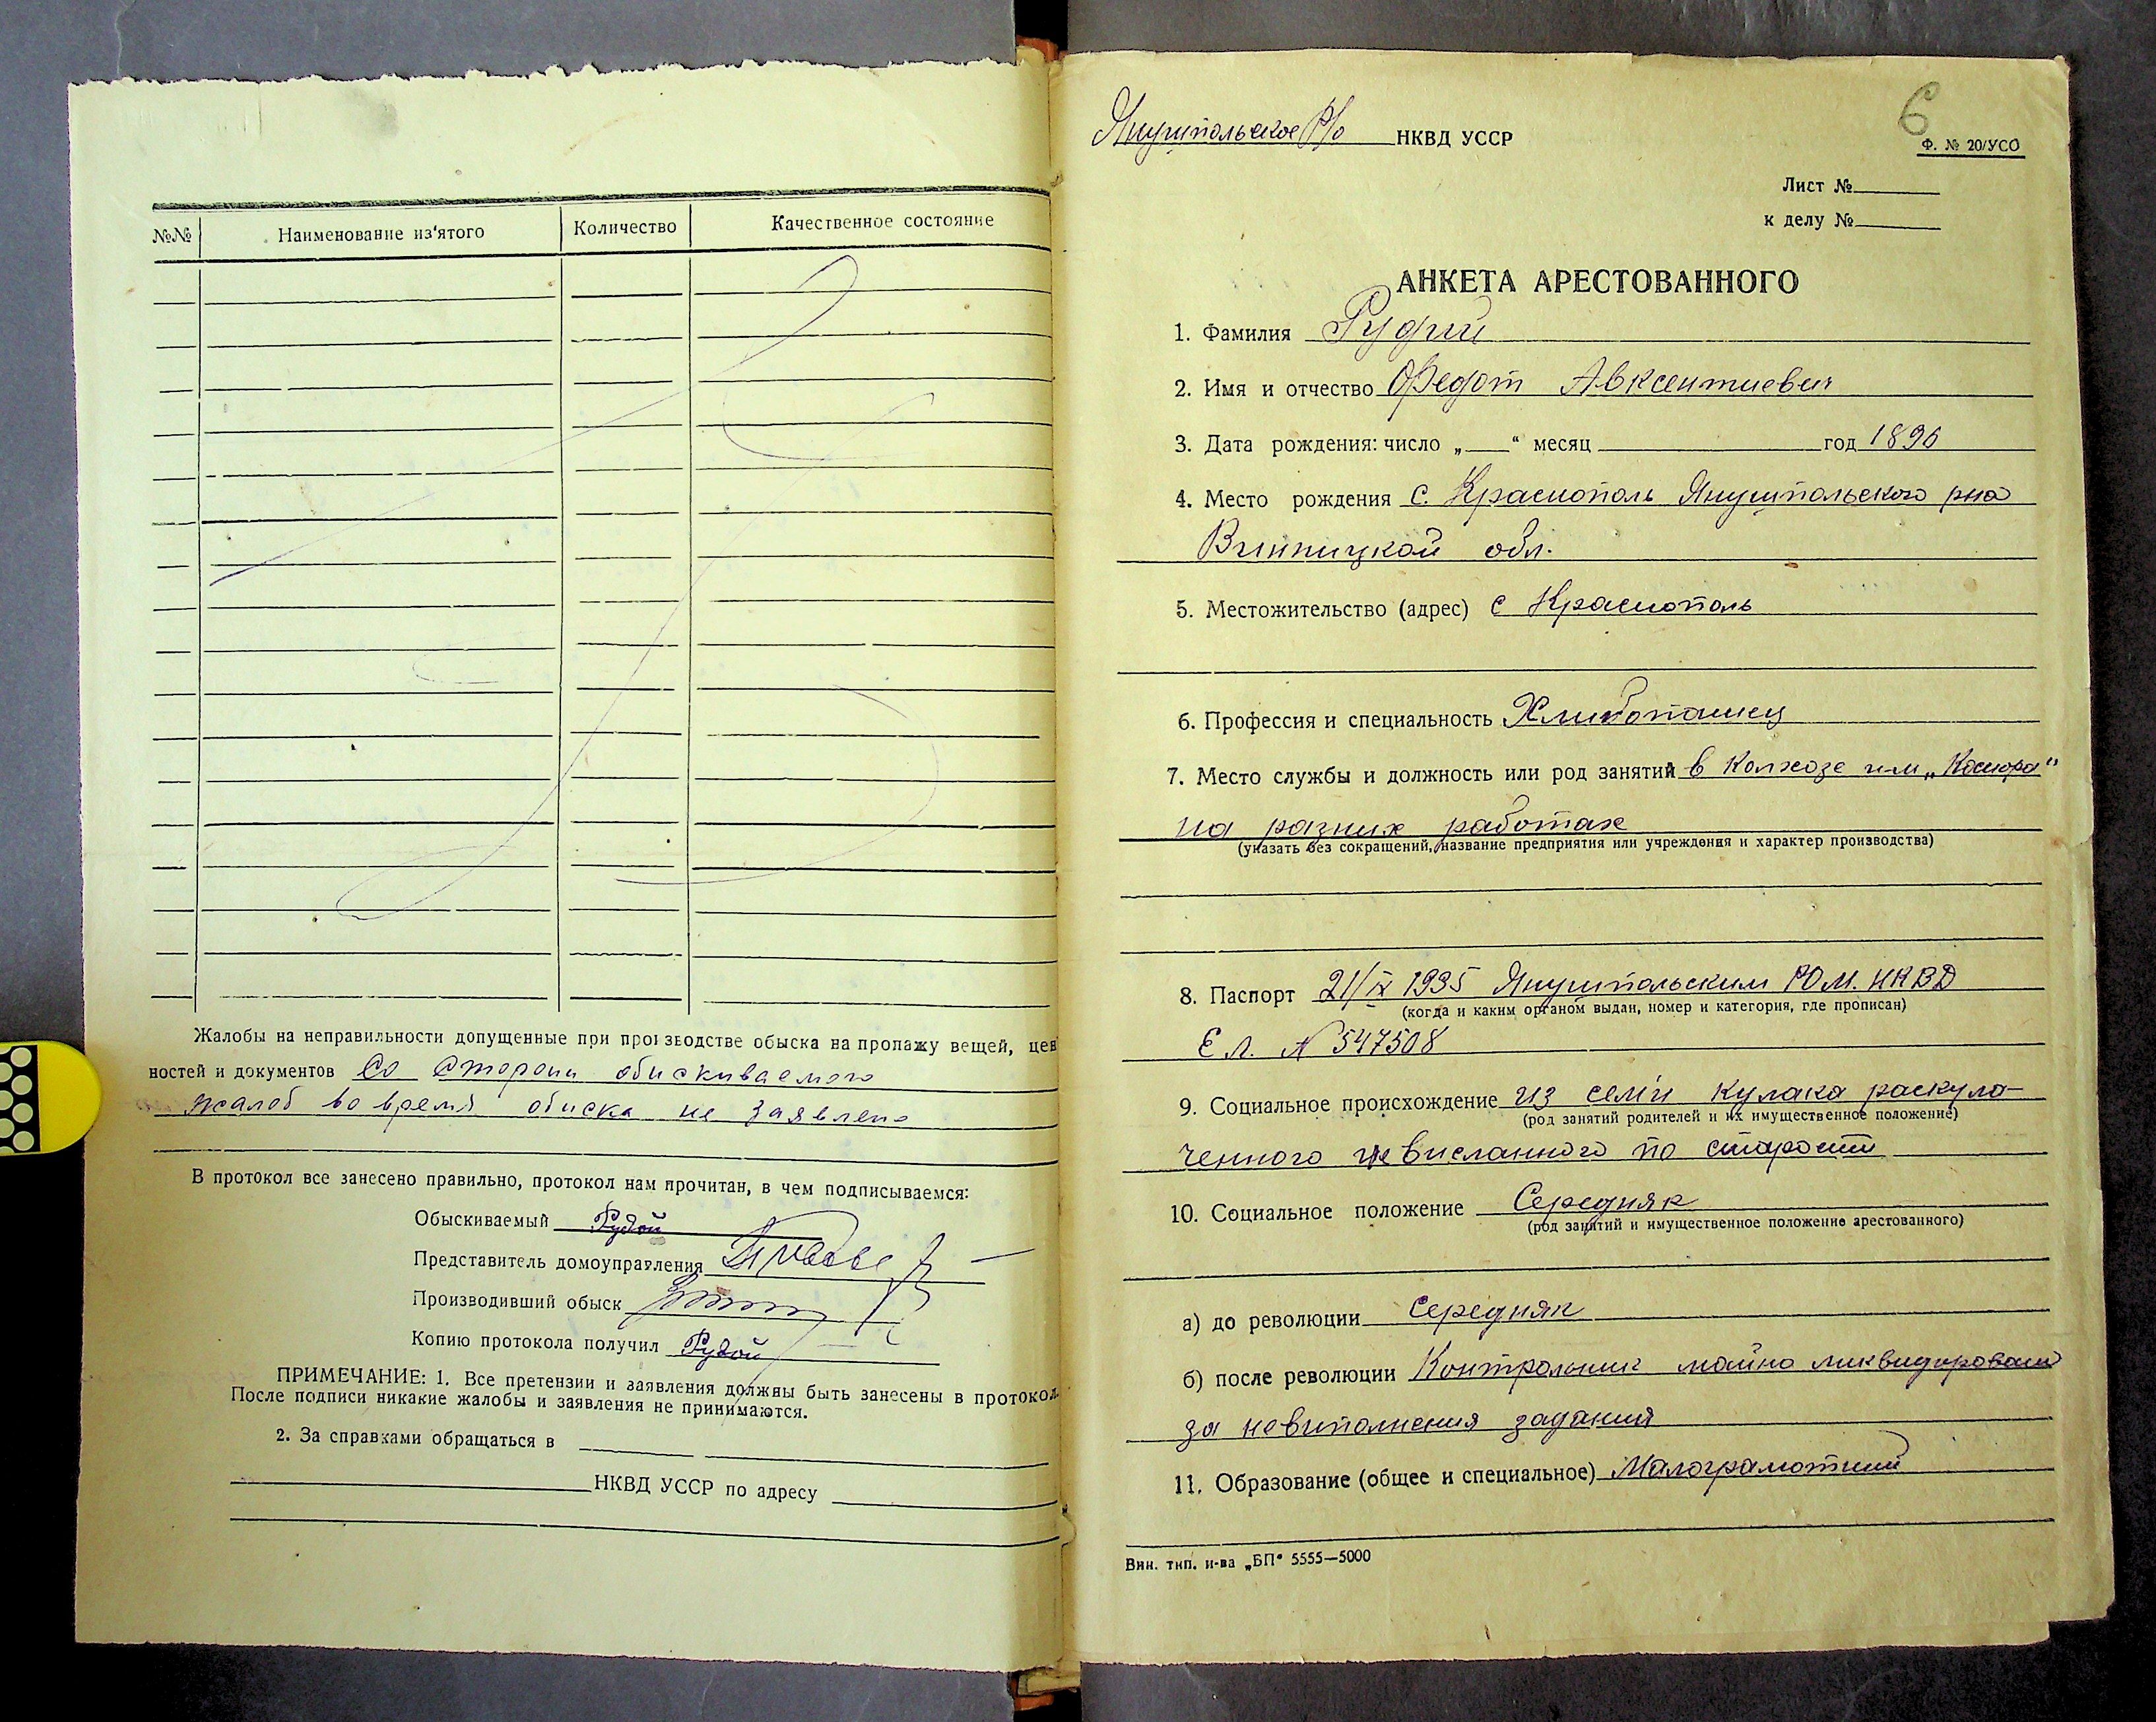 №№ Наименование из'ятого Количество Качественное состояние
Жалобы на неправильности допущенные при производстве обыска на пропажу вещей, цен
ностей и документов Со сторони обискиваемого
жалоб во время обиска не заявлено
В протокол все занесено правильно, протокол нам прочитан, в чем подписываемся:
Обыскиваемый Рудой
Представитель домоуправления
Производивший обыск
Копию протокола получил Рудой
ПРИМЕЧАНИЕ: 1. Все претензии и заявления должны быть занесены в протокол.
После подписи никакие жалобы и заявления не принимаются.
2. За справками обращаться в
НКВД УССР по адресу
6
Янушпольское Р/о НКВД УССР
Ф. № 20/УСО
Лист №
к делу №
АНКЕТА АРЕСТОВАННОГО
1. Фамилия Рудий
2. Имя и отчество Федот Авксентиевич
3. Дата рождения: число „ “ месяц год 1896
4. Место рождения с. Краснополь Янушпольского рна
Винницкой обл.
5. Местожительство (адрес) с Краснополь
6. Профессия и специальность Хлибопашец
7. Место службы и должность или род занятий в колхозе им „Косиора"
на разних работах
(указать без сокращений, название предприятия или учреждения и характер производства)
8. Паспорт 21/IX 1935 Янушпольским РОМ. НКВД
(когда и каким органом выдан, номер и категория, где прописан)
ЕЛ. № 547508
9. Социальное происхождение из семи кулака раскула-
(род занятий родителей и их имущественное положение)
ченного невисланного по старости
10. Социальное положение Середняк
(род занятий и имущественное положение арестованного)
а) до революции середняк
б) после революции Контрольник майно ликвидировали
за невиполнения задания
11. Образование (общее и специальное) Малограмотний
Вин. тип. и-ва „БП“ 5555—5000